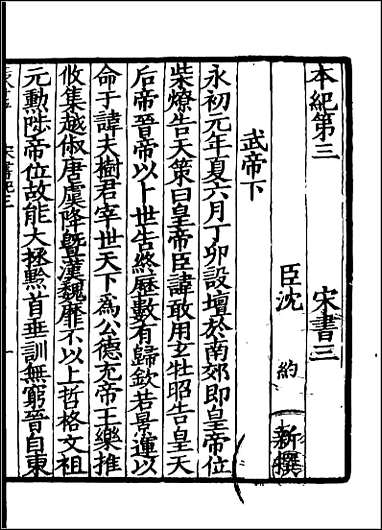 本紀第三 宋書三
臣沈 約 新撰
武帝下
永初元年夏六月丁卯設壇於南郊即皇帝位
柴燎告天策曰皇帝臣諱敢用玄牡昭告皇天
后帝晉帝以卜世告終歷數有歸欽若景運以
命于諱夫樹君宰世天下爲公德充帝王樂推
攸集越俶唐虞降曁漢魏靡不以上哲格文祖
元勲陟帝位故能大拯黔首垂訓無窮晉自東